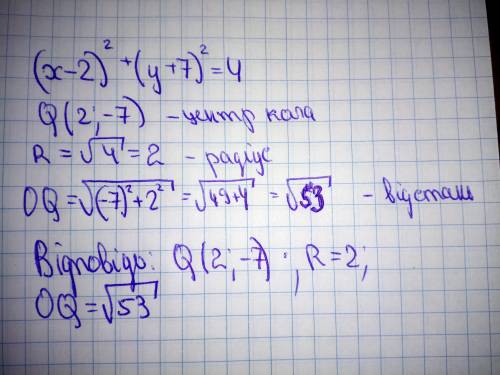 (x-2)² + (y+7)² = 4
Q(2; -7) - центр кола
R = √4 = 2 - радіус
OQ = √((-7)² + 2²) = √(49+4) = √53 - відстань
Відповідь: Q(2; -7); R = 2;
OQ = √53